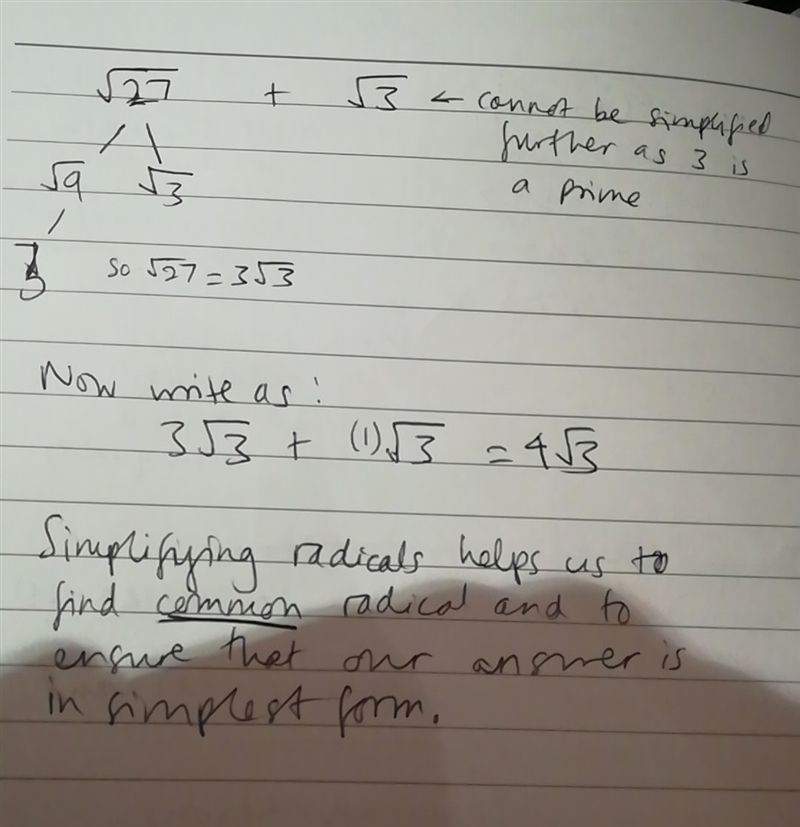 √27 + √3 ← cannot be simplified
further as 3 is
a prime
√9 √3
3 so √27 = 3√3
Now write as:
3√3 + (1)√3 = 4√3
Simplifying radicals helps us to
find common radical and to
ensure that our answer is
in simplest form.